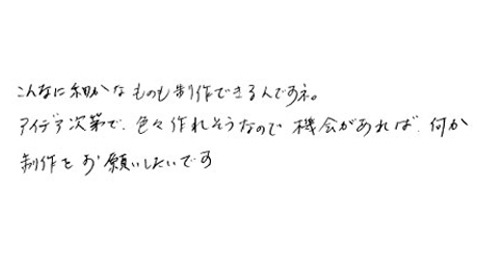 こんなに細かなものも制作できるんですネ。
アイデア次第で、色々作れそうなので機会があれば、何か
制作をお願いしたいです